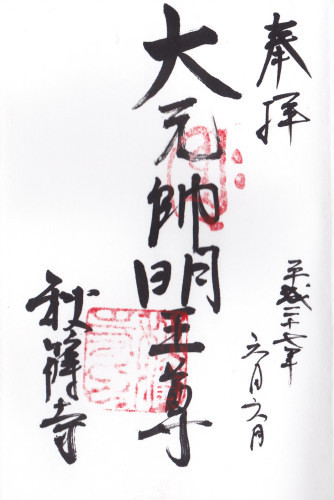 奉拝
平成二十七年
六月六日
大元帥明王尊
秋篠寺